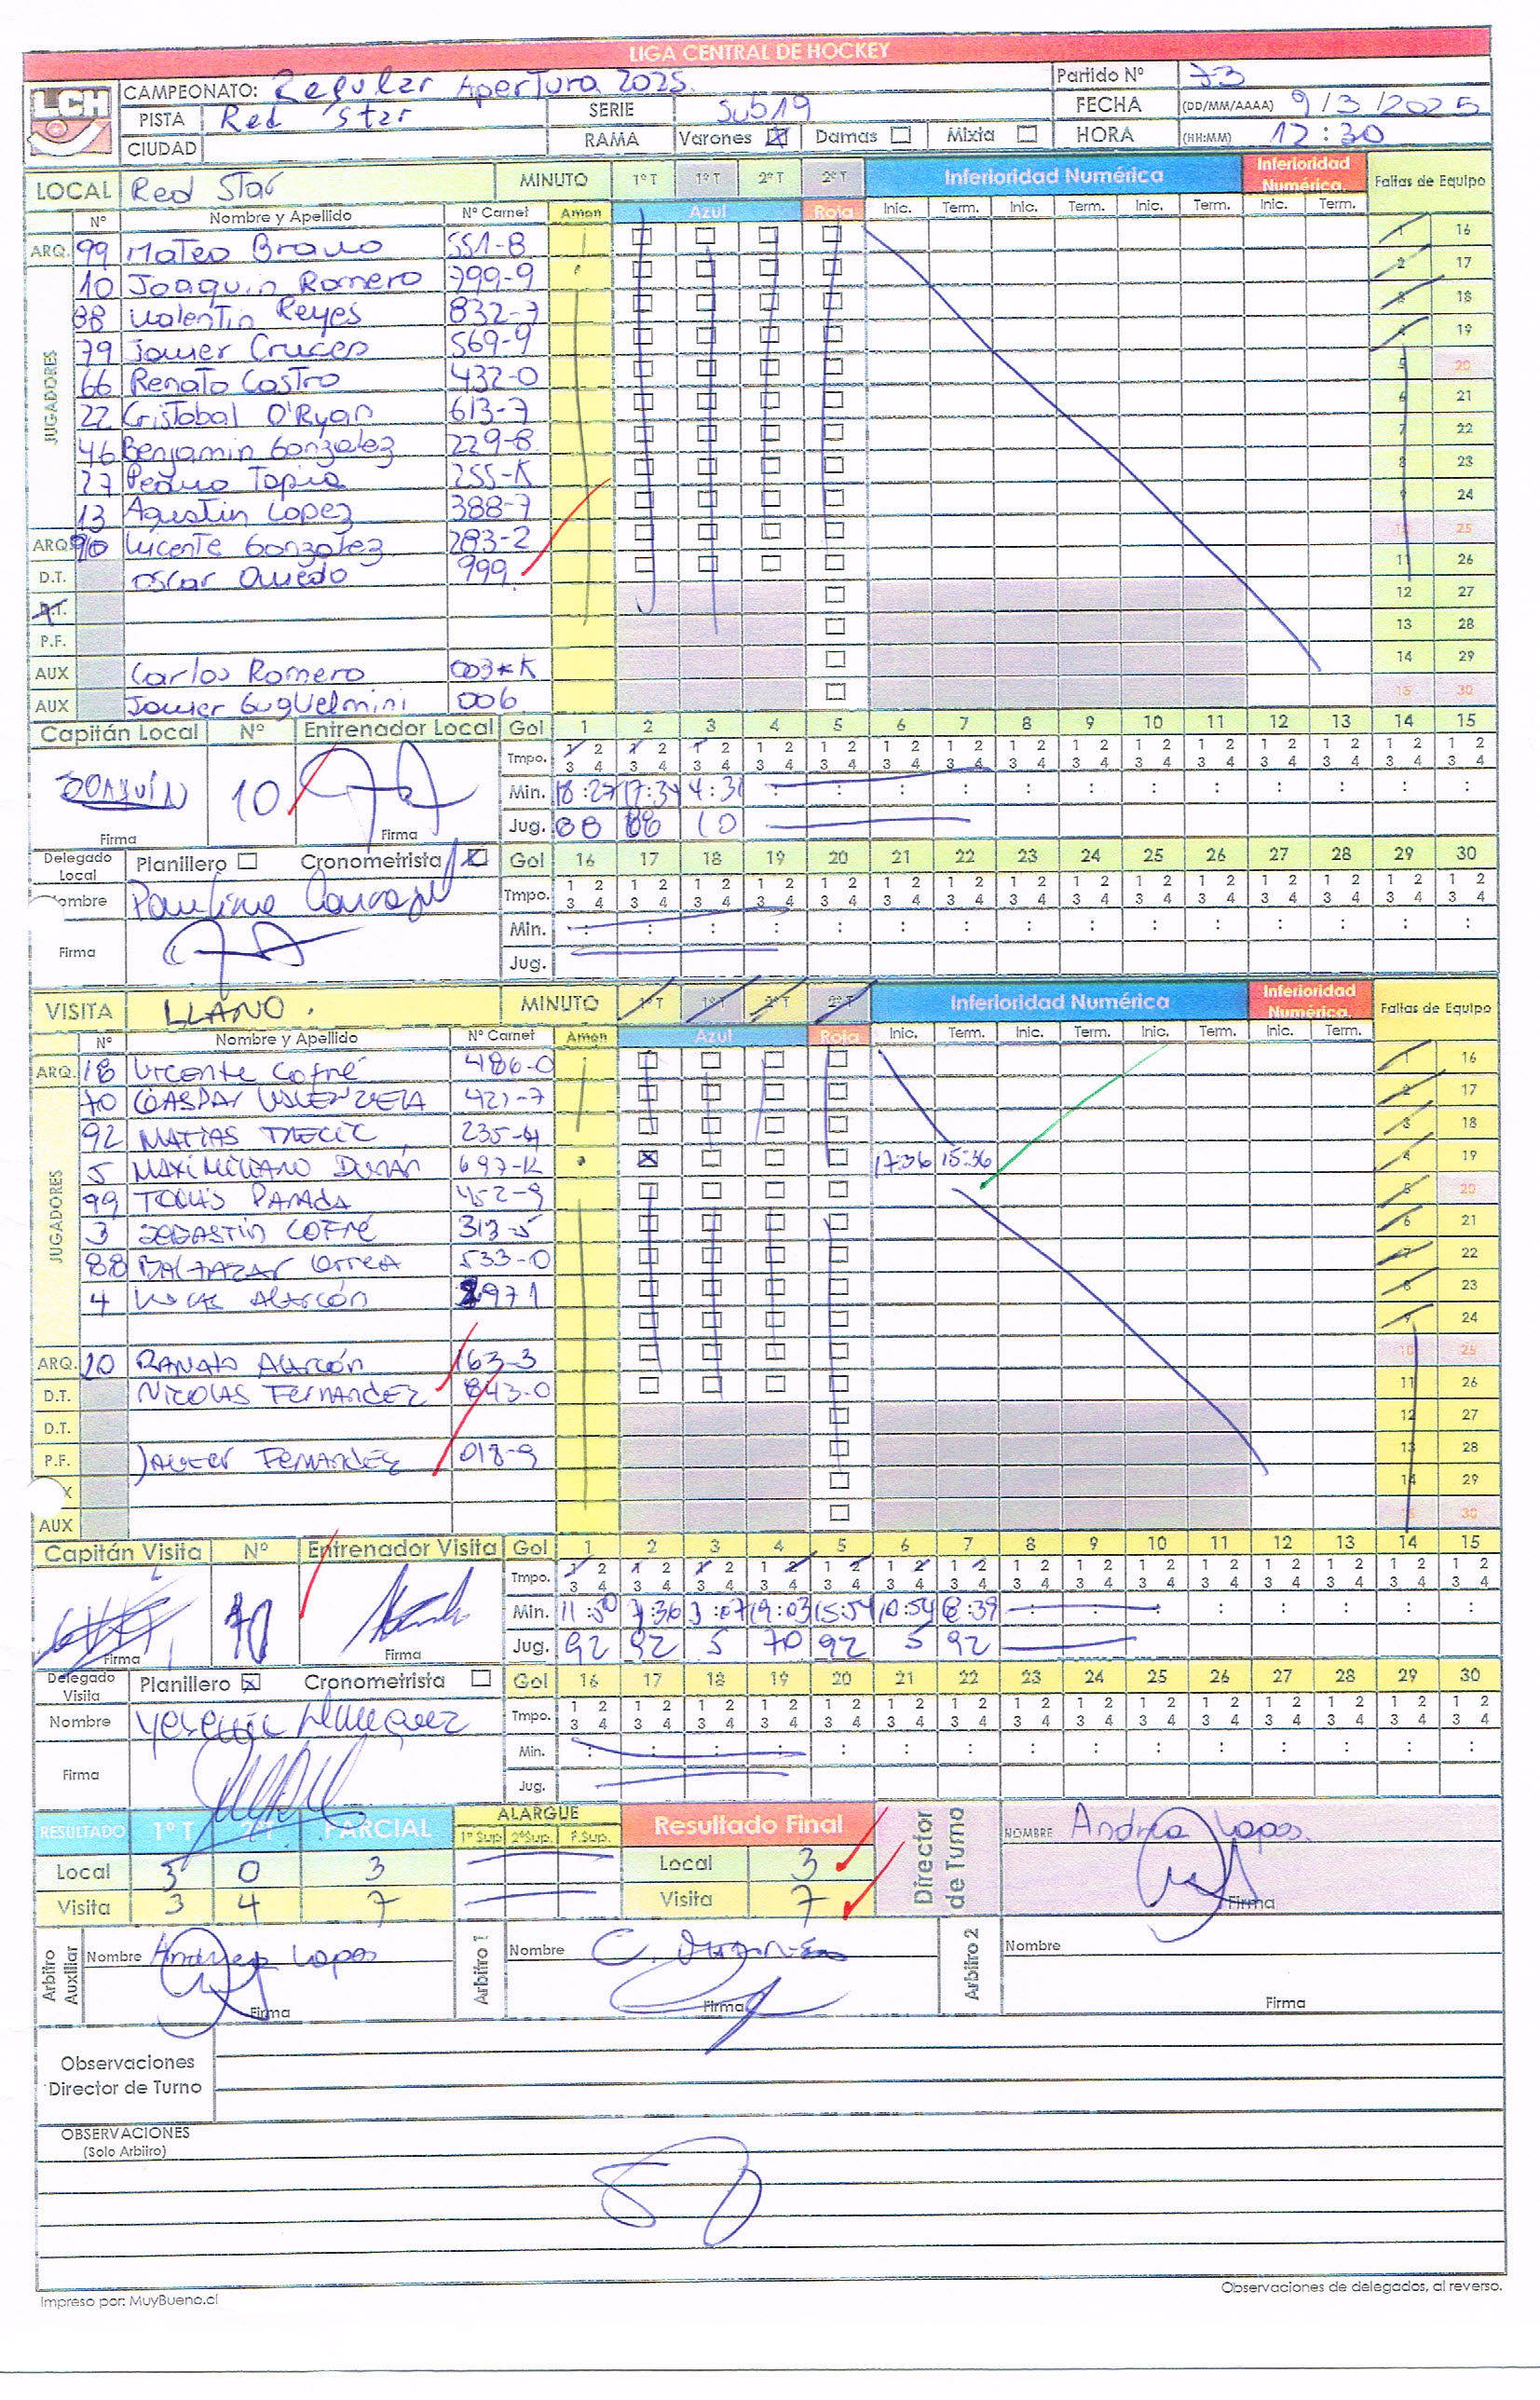 LIGA CENTRAL DE HOCKEY
LCH
CAMPEONATO: Regular Apertura 2025. Partido Nº 73
PISTA Red Star SERIE Sub19 FECHA (DD/MM/AAAA) 9/3/2025
CIUDAD RAMA Varones ☒ Damas ☐ Mixta ☐ HORA (HH:MM) 12:30
LOCAL Red Star MINUTO 1º T 1º T 2º T 2º T Inferioridad Numérica Inferioridad Numérica. Faltas de Equipo
Nº Nombre y Apellido Nº Carnet Amon Azul Roja Inic. Term. Inic. Term. Inic. Term. Inic. Term.
ARQ. 99 Mateo Bravo 551-8 1 16
JUGADORES
10 Joaquin Romero 799-9 2 17
88 Valentin Reyes 832-7 3 18
79 Javier Cruces 569-9 4 19
66 Renato Castro 432-0 5 20
22 Cristobal O'Ryan 613-7 6 21
46 Benjamin Gonzalez 229-8 7 22
27 Pedro Tapia 255-K 8 23
13 Agustin Lopez 388-7 9 24
ARQ. 90 Vicente Gonzalez 283-2 10 25
D.T. Oscar Oviedo 999 11 26
D.T. 12 27
P.F. 13 28
AUX Carlos Romero 003*K 14 29
AUX Javier Guglielmini 006 15 30
Capitán Local Nº Entrenador Local Gol 1 2 3 4 5 6 7 8 9 10 11 12 13 14 15
JOAQUÍN 10 Tmpo. 1 2 3 4
Min. 18:27 17:34 4:31
Firma Firma Jug. 88 88 10
Delegado Local Planillero ☐ Cronometrista ☒ Gol 16 17 18 19 20 21 22 23 24 25 26 27 28 29 30
Nombre Paulina Tmpo. 1 2 3 4
Firma Min.
Jug.
VISITA LLANO. MINUTO 1º T 1º T 2º T 2º T Inferioridad Numérica Inferioridad Numérica. Faltas de Equipo
Nº Nombre y Apellido Nº Carnet Amon Azul Roja Inic. Term. Inic. Term. Inic. Term. Inic. Term.
ARQ. 18 Vicente Cofré 486-0 1 16
JUGADORES
70 GASPAR VALENZUELA 421-7 2 17
92 MATIAS 235-4 3 18
5 MAXIMILIANO DURÁN 697-K ☒ 17:36 15:36 4 19
99 TOMÁS PARADA 452-9 5 20
3 SEBASTIÁN COFRÉ 313-5 6 21
88 BALTAZAR Correa 533-0 7 22
4 LUCAS ALARCÓN 2971 8 23
9 24
ARQ. 20 RENATO ALARCÓN 163-3 10 25
D.T. NICOLAS FERNANDEZ 843-0 11 26
D.T. 12 27
P.F. JAVIER FERNANDEZ 018-9 13 28
14 29
AUX 15 30
Capitán Visita Nº Entrenador Visita Gol 1 2 3 4 5 6 7 8 9 10 11 12 13 14 15
70 Tmpo. 1 2 3 4
Min. 11:50 7:36 3:07 19:03 15:54 10:54 8:39
Firma Firma Jug. 92 92 5 70 92 5 92
Delegado Visita Planillero ☒ Cronometrista ☐ Gol 16 17 18 19 20 21 22 23 24 25 26 27 28 29 30
Nombre Tmpo. 1 2 3 4
Firma Min.
Jug.
RESULTADO 1º T 2º T PARCIAL ALARGUE 1º Sup. 2º Sup. P.Sup. Resultado Final Director de Turno NOMBRE Andrea Lopez
Local 3 0 3 Local 3
Visita 3 4 7 Visita 7 Firma
Arbitro Auxiliar Nombre Andrea Lopez Firma Arbitro 1 Nombre C. Firma Arbitro 2 Nombre Firma
Observaciones
Director de Turno
OBSERVACIONES
(Solo Arbitro)
Impreso por: MuyBueno.cl Observaciones de delegados, al reverso.